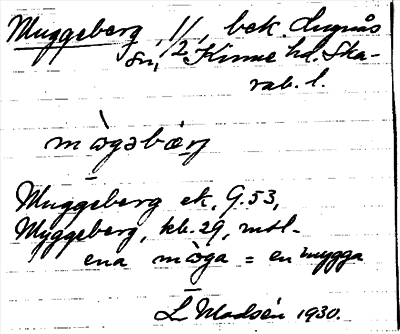 Muggeberg, 1/2, bek. Lugnås
sn, Kinne hd. Ska-
rab. l.
Muggeberg ek, G. 53,
Myggeberg, kb. 29, mtl.
ena = en mygga
L Madsén 1930.